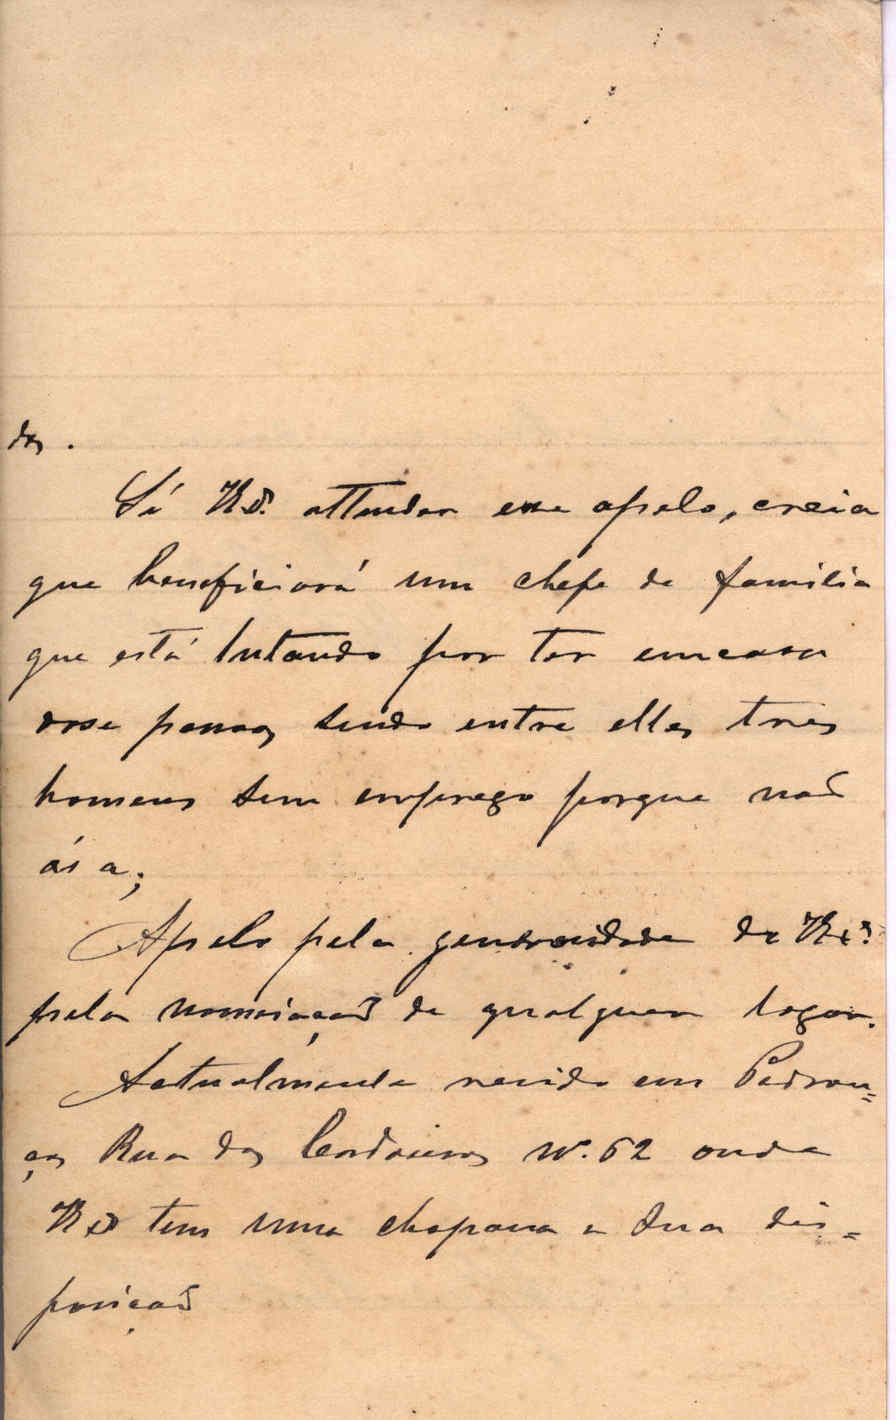 dos.
Si V. Ex.ª attender esse apelo, creia
que beneficiará um chefe de familia
que está lutando por ter em casa
dose pessoas sendo entre elles tres
homens sem emprego porque não
ás a;
Apelo pela generosidade de V. Ex.ª
pela nomeiação de qualquer logar.
Actualmente resido em Pedrou=
ços Rua das Cordoeiros Nº. 62 onde
V. Ex.ª tem uma chopana a sua dis=
posição